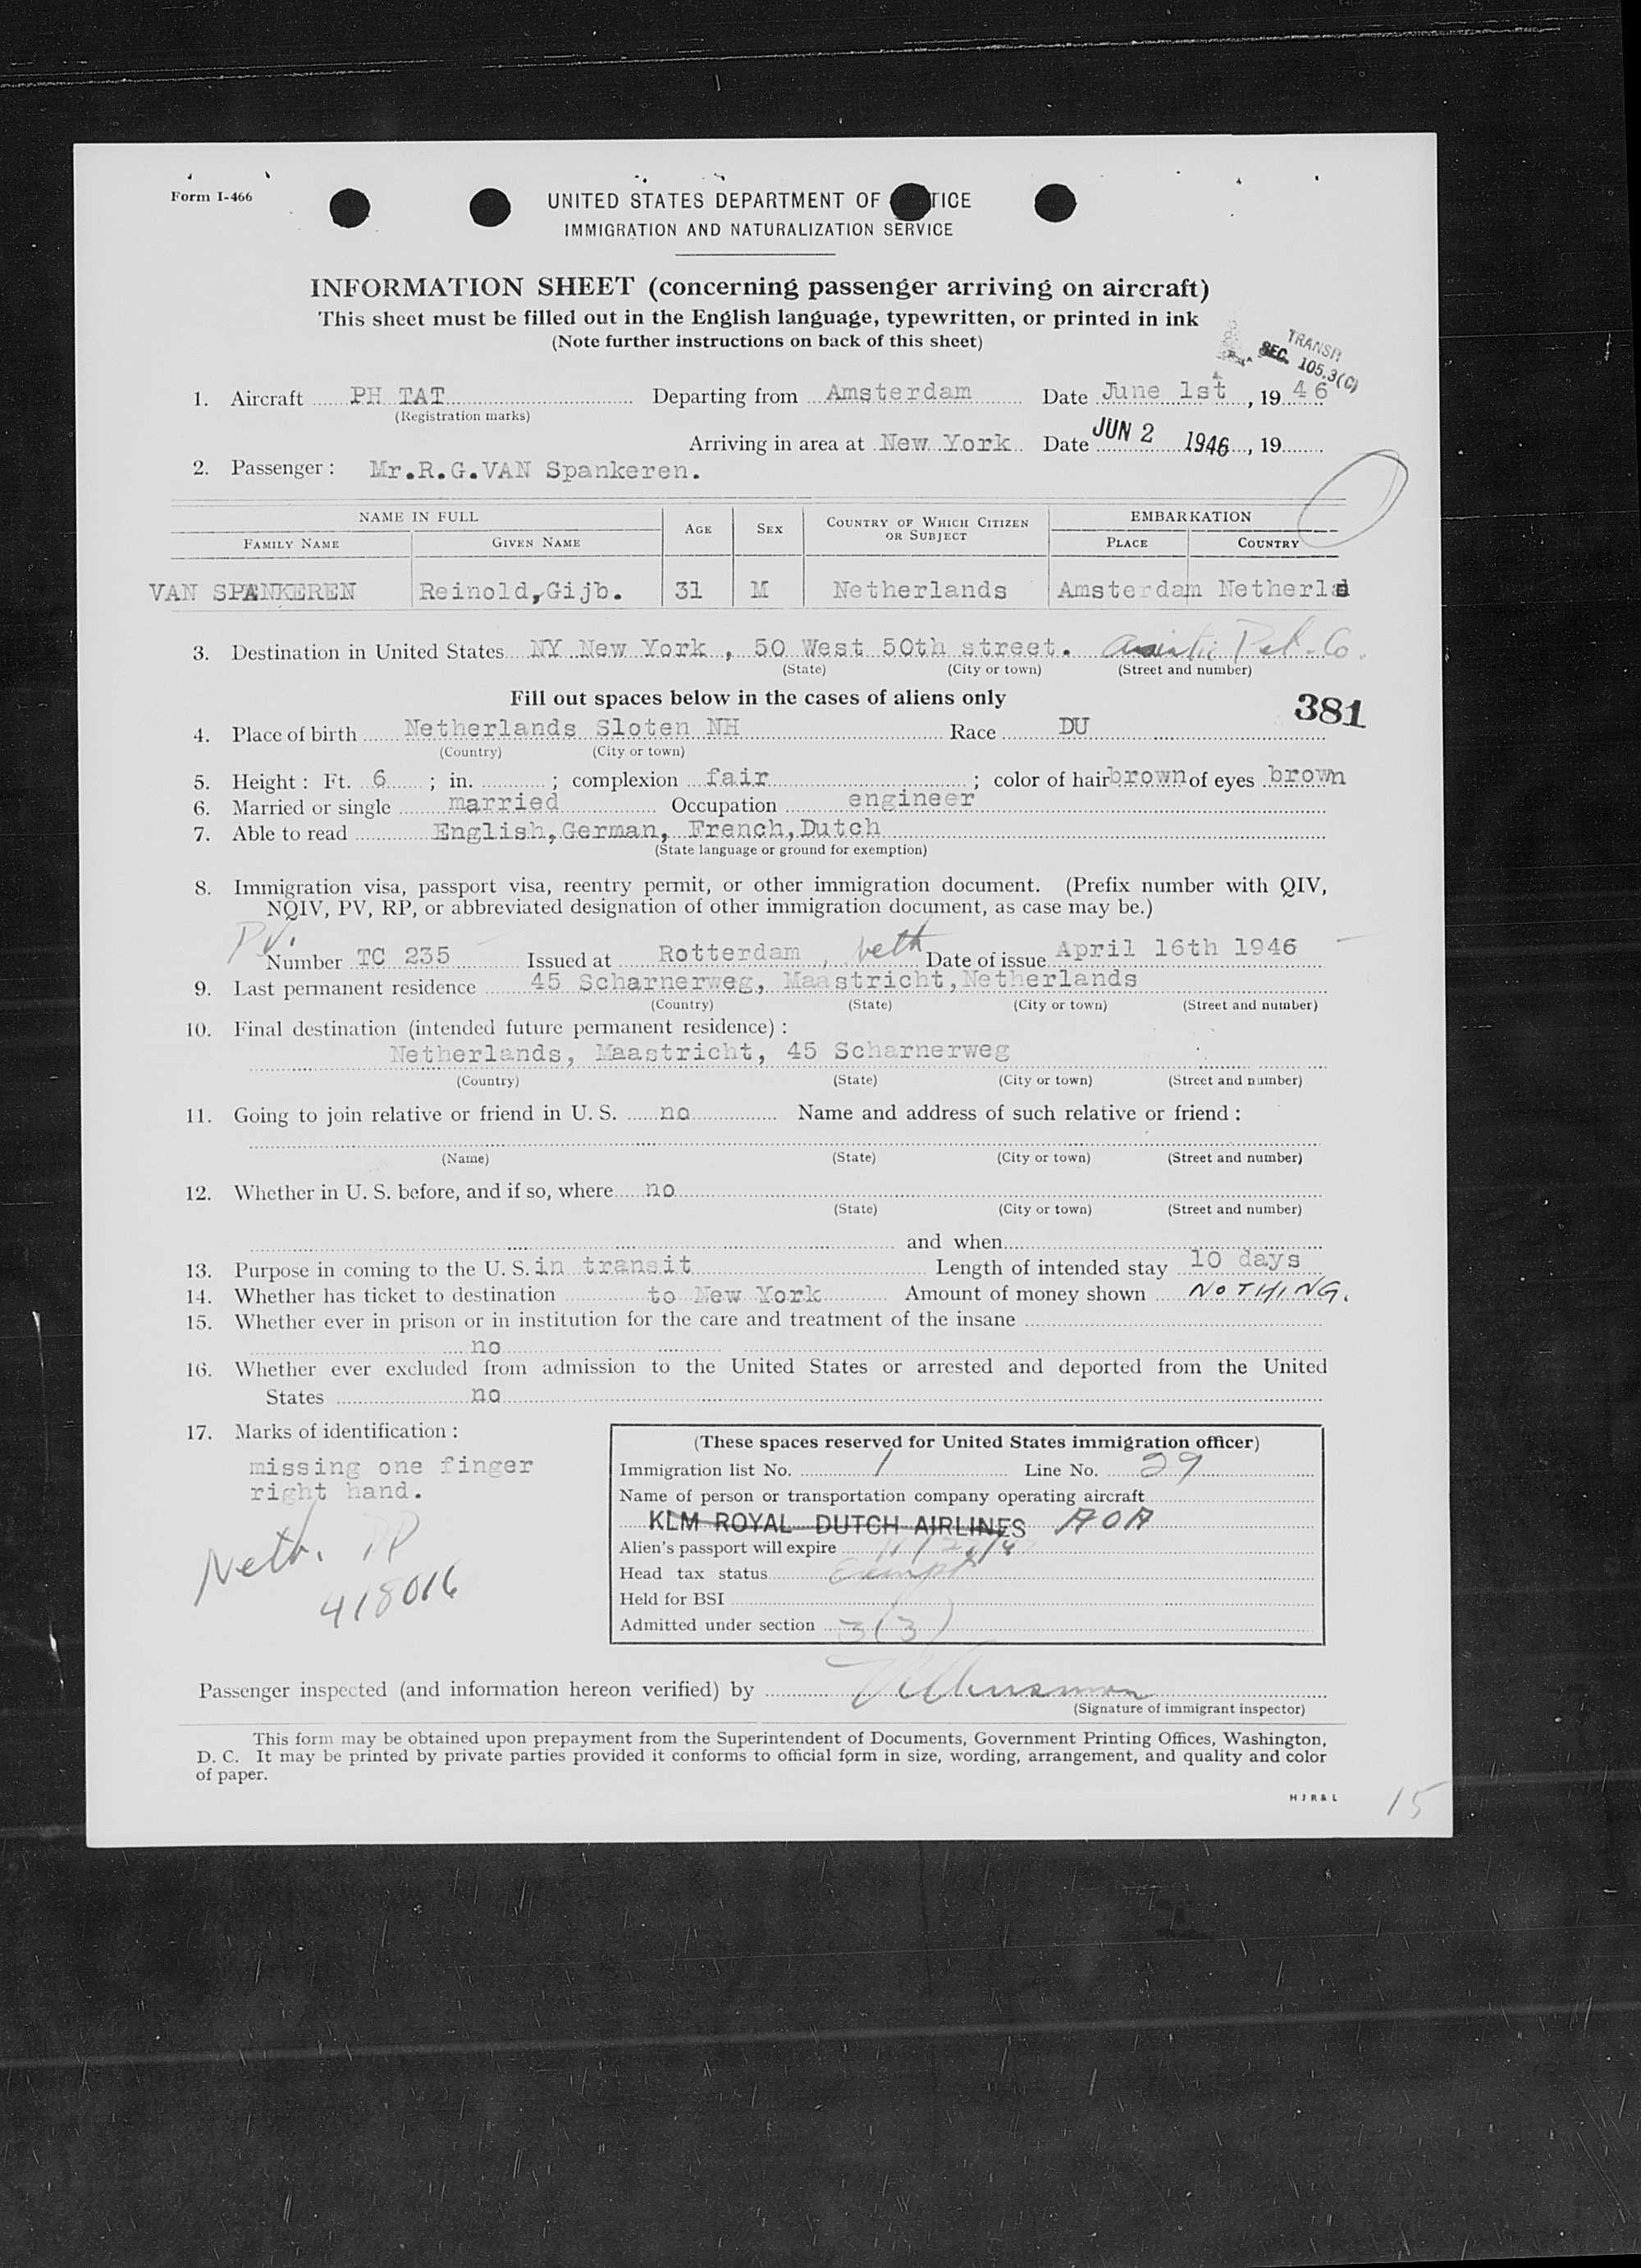 Form I-466
UNITED STATES DEPARTMENT OF TICE
IMMIGRATION AND NATURALIZATION SERVICE
INFORMATION SHEET (concerning passenger arriving on aircraft)
This sheet must be filled out in the English language, typewritten, or printed in ink
(Note further instructions on back of this sheet)
TRANSIT
SEC. 105.3(C)
1. Aircraft PH TAT Departing from Amsterdam Date June 1st, 19 46
(Registration marks)
Arriving in area at New York Date JUN 2 1946, 19
2. Passenger: Mr.R.G.VAN Spankeren.
NAME IN FULL AGE SEX COUNTRY OF WHICH CITIZEN OR SUBJECT EMBARKATION
FAMILY NAME GIVEN NAME PLACE COUNTRY
VAN SPANKEREN Reinold,Gijb. 31 M Netherlands Amsterdam Netherld
3. Destination in United States NY New York, 50 West 50th street. Asiatic Pet. Co.
(State) (City or town) (Street and number)
Fill out spaces below in the cases of aliens only
381
4. Place of birth Netherlands Sloten NH Race DU
(Country) (City or town)
5. Height: Ft. 6; in. ; complexion fair; color of hair brown of eyes brown
6. Married or single married Occupation engineer
7. Able to read English,German, French,Dutch
(State language or ground for exemption)
8. Immigration visa, passport visa, reentry permit, or other immigration document. (Prefix number with QIV,
NQIV, PV, RP, or abbreviated designation of other immigration document, as case may be.)
PV.
Number TC 235 Issued at Rotterdam, Neth Date of issue April 16th 1946
9. Last permanent residence 45 Scharnerweg, Maastricht,Netherlands
(Country) (State) (City or town) (Street and number)
10. Final destination (intended future permanent residence):
Netherlands, Maastricht, 45 Scharnerweg
(Country) (State) (City or town) (Street and number)
11. Going to join relative or friend in U. S. no Name and address of such relative or friend:
(Name) (State) (City or town) (Street and number)
12. Whether in U. S. before, and if so, where no
(State) (City or town) (Street and number)
and when
13. Purpose in coming to the U. S. in transit Length of intended stay 10 days
14. Whether has ticket to destination to New York Amount of money shown NOTHING.
15. Whether ever in prison or in institution for the care and treatment of the insane
no
16. Whether ever excluded from admission to the United States or arrested and deported from the United
States no
17. Marks of identification:
missing one finger
right hand.
Neth. PP
418016
(These spaces reserved for United States immigration officer)
Immigration list No. 1 Line No. 29
Name of person or transportation company operating aircraft
KLM ROYAL DUTCH AIRLINES AOA
Alien's passport will expire
Head tax status Exempt
Held for BSI
Admitted under section 3(3)
Passenger inspected (and information hereon verified) by
(Signature of immigrant inspector)
This form may be obtained upon prepayment from the Superintendent of Documents, Government Printing Offices, Washington,
D. C. It may be printed by private parties provided it conforms to official form in size, wording, arrangement, and quality and color
of paper.
HJR&L
15